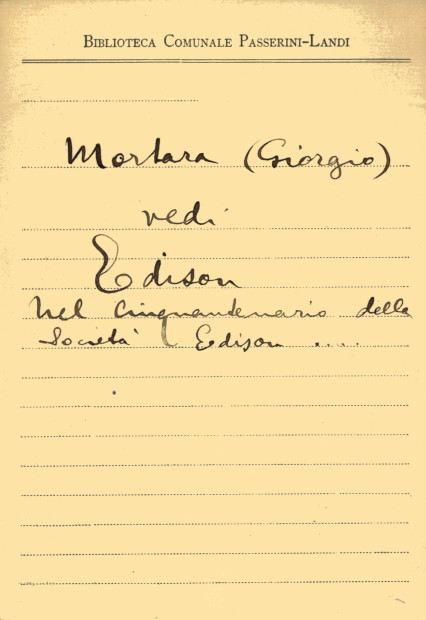 Biblioteca Comunale Passerini-Landi
Mortara (Giorgio)
vedi
Edison
Nel Cinquantenario della
Società Edison ....